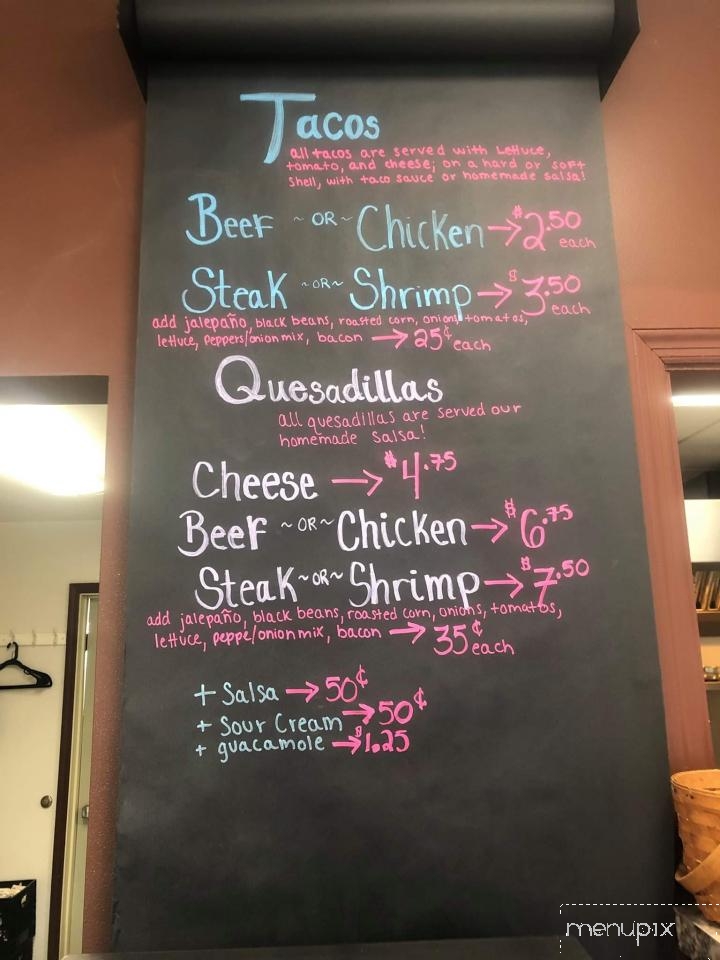 Tacos
all tacos are served with Lettuce,
tomato, and cheese; on a hard or soft
shell, with taco sauce or homemade salsa!
Beef ~ OR ~ Chicken → $2.50
each
Steak ~OR~ Shrimp → $3.50
each
add jalepaño, black beans, roasted corn, onions, tomatos,
lettuce, peppers/onion mix, bacon → 25¢ each
Quesadillas
all quesadillas are served our
homemade salsa!
Cheese → $4.75
Beef ~OR~ Chicken → $6.75
Steak ~OR~ Shrimp → $7.50
add jalepaño, black beans, roasted corn, onions, tomatos,
lettuce, peppe/onion mix, bacon → 35¢ each
+ Salsa → 50¢
+ Sour Cream → 50¢
+ guacamole → $1.25
menupix